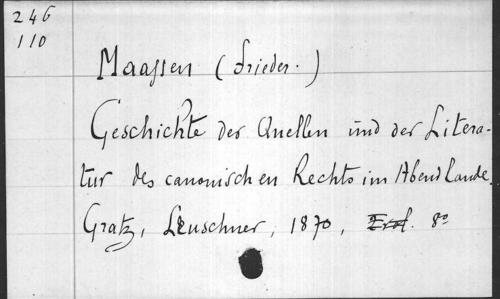 246
110
Maassen (Frieder.)
Geschichte der Quellen und der Litera-
tur des canonischen Rechts im Abendlande.
Gratz, Leuschner, 1870, 8°